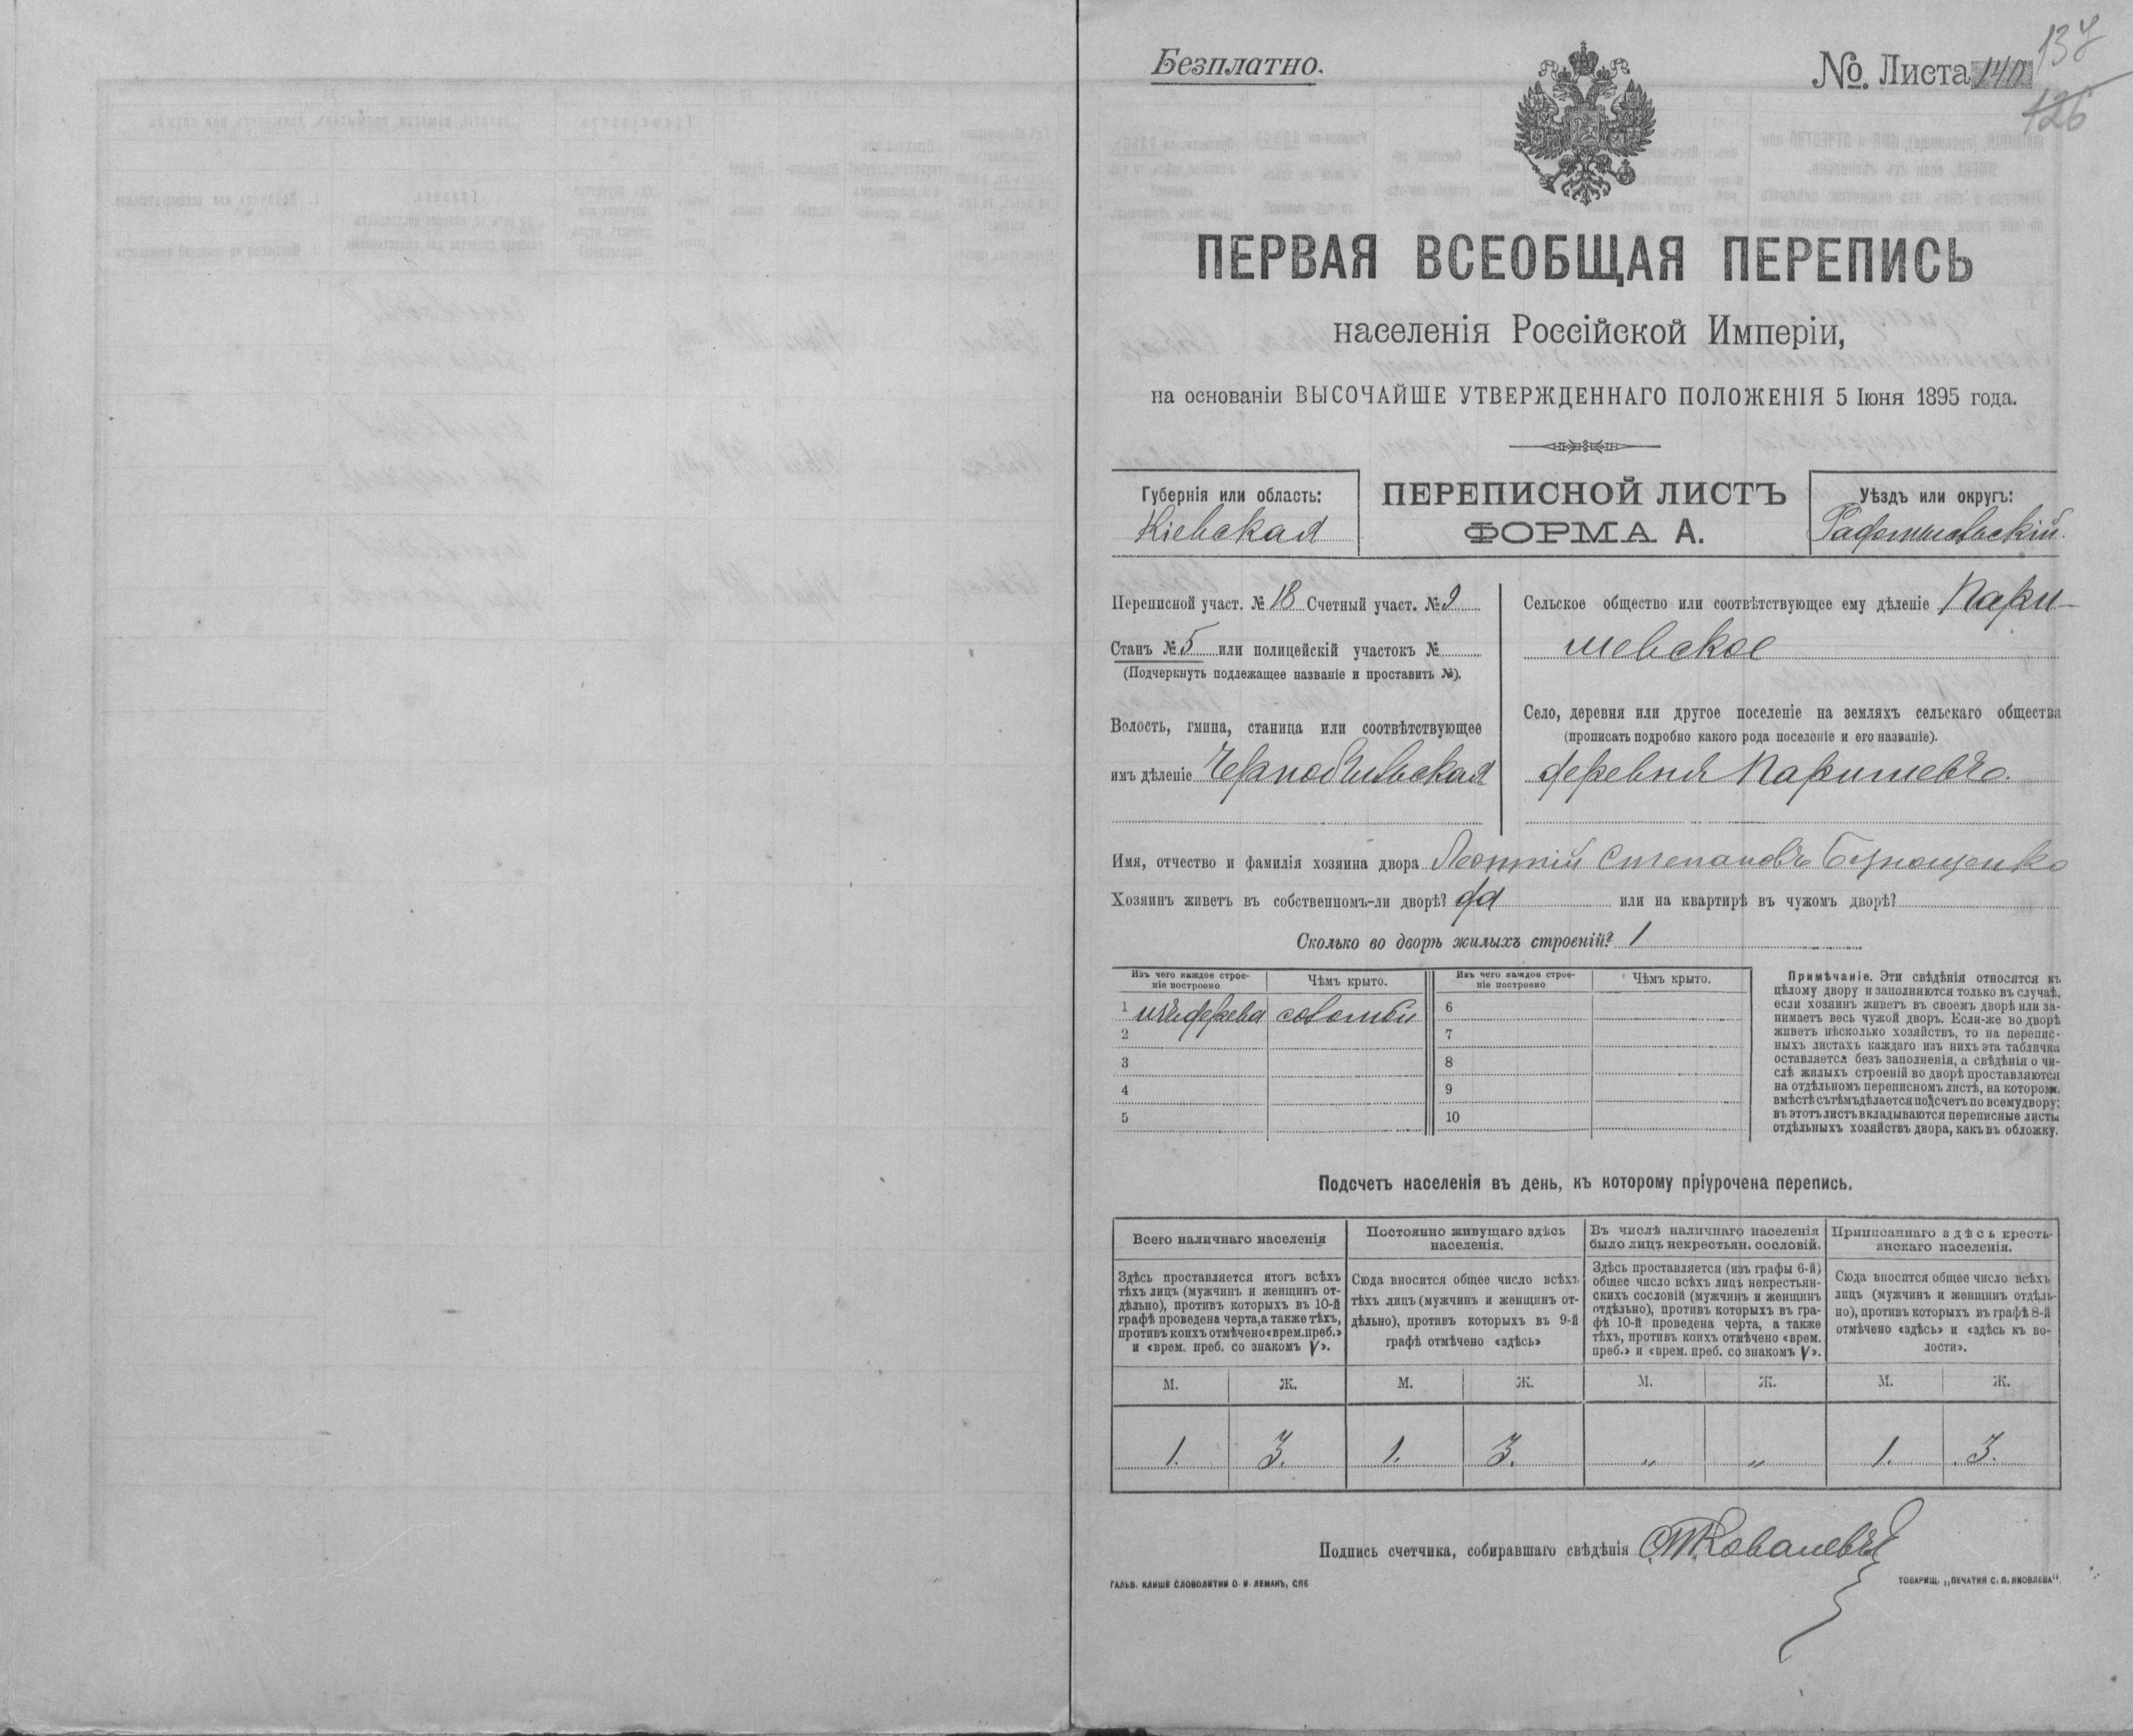 Безплатно.
№ Листа 140
137
126
ПЕРВАЯ ВСЕОБЩАЯ ПЕРЕПИСЬ
населенія Россійской Имперіи,
на основаніи ВЫСОЧАЙШЕ УТВЕРЖДЕННАГО ПОЛОЖЕНІЯ 5 Іюня 1895 года.
Губернія или область:
Кіевская
ПЕРЕПИСНОЙ ЛИСТЪ
ФОРМА А.
Уѣздъ или округъ:
Радомысльскій.
Переписной участ. № 18 Счетный участ. № 9
Станъ № 5 или полицейскій участокъ №
(Подчеркнуть подлежащее названіе и проставить №).
Волость, гмина, станица или соотвѣтствующее
имъ дѣленіе Чернобыльская
Сельское общество или соотвѣтствующее ему дѣленіе Пари-
шевское
Село, деревня или другое поселеніе на земляхъ сельскаго общества
(прописать подробно какого рода поселеніе и его названіе).
деревня Паришевъ.
Имя, отчество и фамилія хозяина двора Леонтій Степановъ
Хозяинъ живетъ въ собственномъ-ли дворѣ? да или на квартирѣ въ чужомъ дворѣ?
Сколько во дворѣ жилыхъ строеній? 1
Изъ чего каждое строе-
ніе построено
Чѣмъ крыто.
Изъ чего каждое строе-
ніе построено
Чѣмъ крыто.
1 изъ дерева соломой 6
2 7
3 8
4 9
5 10
Примѣчаніе. Эти свѣдѣнія относятся къ
цѣлому двору и заполняются только въ случаѣ,
если хозяинъ живетъ въ своемъ дворѣ или за-
нимаетъ весь чужой дворъ. Если-же во дворѣ
живетъ нѣсколько хозяйствъ, то на перепис-
ныхъ листахъ каждаго изъ нихъ эта табличка
оставляется безъ заполненія, а свѣдѣнія о чи-
слѣ жилыхъ строеній во дворѣ проставляются
на отдѣльномъ переписномъ листѣ, на которомъ
вмѣстѣ съ тѣмъ дѣлается подсчетъ по всему двору;
въ этотъ листъ вкладываются переписные листы
отдѣльныхъ хозяйствъ двора, какъ въ обложку.
Подсчетъ населенія въ день, къ которому пріурочена перепись.
Всего наличнаго населенія
Здѣсь проставляется итогъ всѣхъ
тѣхъ лицъ (мужчинъ и женщинъ от-
дѣльно), противъ которыхъ въ 10-й
графѣ проведена черта, а также тѣхъ,
противъ коихъ отмѣчено «врем. преб.»
и «врем. преб. со знакомъ V».
Постоянно живущаго здѣсь
населенія.
Сюда вносится общее число всѣхъ
тѣхъ лицъ (мужчинъ и женщинъ от-
дѣльно), противъ которыхъ въ 9-й
графѣ отмѣчено «здѣсь»
Въ числѣ наличнаго населенія
было лицъ некрестьян. сословій.
Здѣсь проставляется (изъ графы 6-й)
общее число всѣхъ лицъ некрестьян-
скихъ сословій (мужчинъ и женщинъ
отдѣльно), противъ которыхъ въ гра-
фѣ 10-й проведена черта, а также
тѣхъ, противъ коихъ отмѣчено «врем.
преб.» и «врем. преб. со знакомъ V».
Приписаннаго здѣсь кресть-
янскаго населенія.
Сюда вносится общее число всѣхъ
лицъ (мужчинъ и женщинъ отдѣль-
но), противъ которыхъ въ графѣ 8-й
отмѣчено «здѣсь» и «здѣсь къ во-
лости».
М. Ж. М. Ж. М. Ж. М. Ж.
1. 3. 1. 3. „ „ 1. 3.
Подпись счетчика, собиравшаго свѣдѣнія
ГАЛЬВ. КЛИШЕ СЛОВОЛИТНИ О. И. ЛЕМАНЪ, СПБ
ТОВАРИЩ. „ПЕЧАТНЯ С. П. ЯКОВЛЕВА".